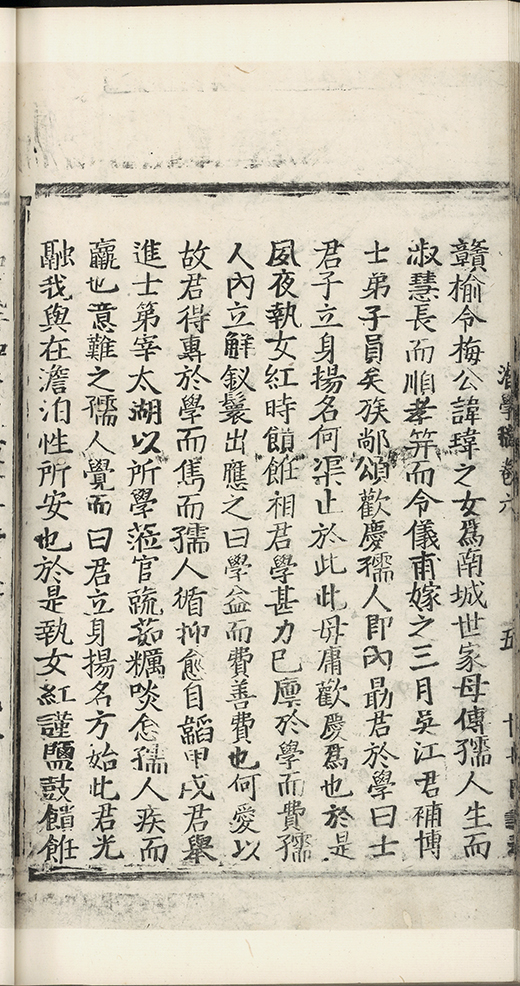 治學稿卷六
五
贛榆令梅公諱瑋之女爲南城世家母傅孺人生而
淑慧長而順孝笄而令儀甫嫁之三月吳江君補博
士弟子員矣族鄰頌歡慶孺人即內勗君於學曰士
君子立身揚名何渠止於此此毋庸歡慶爲也於是
夙夜執女紅時饋飪相君學甚力巳廩於學而費孺
人內立解釵鬟出應之曰學益而費善費也何愛以
故君得專於學而雋而孺人循抑愈自韜甲戌君舉
進士第宰太湖以所學蒞官蔬茹糲啖怠孺人疾而
羸也意難之孺人覺而曰君立身揚名方始此君光
融我與在澹泊性所安也於是執女紅謹鹽鼓饋飪